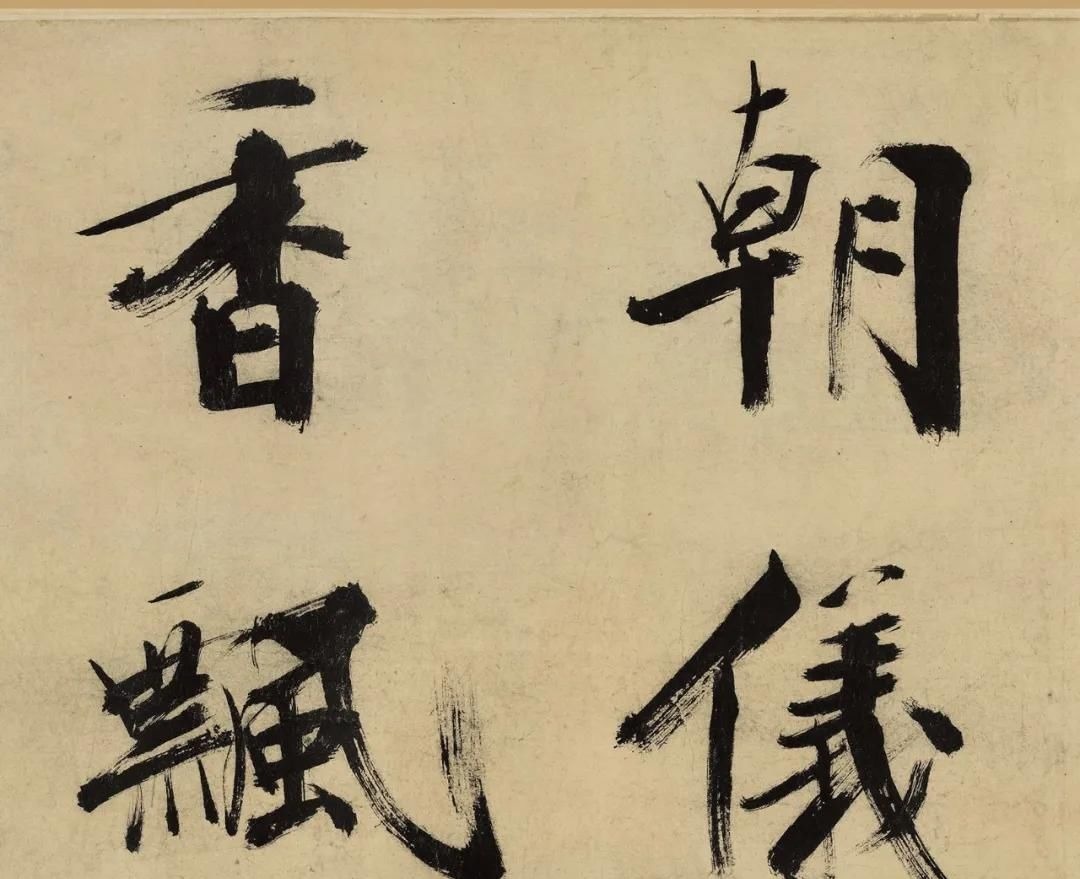 朝儀
香飄